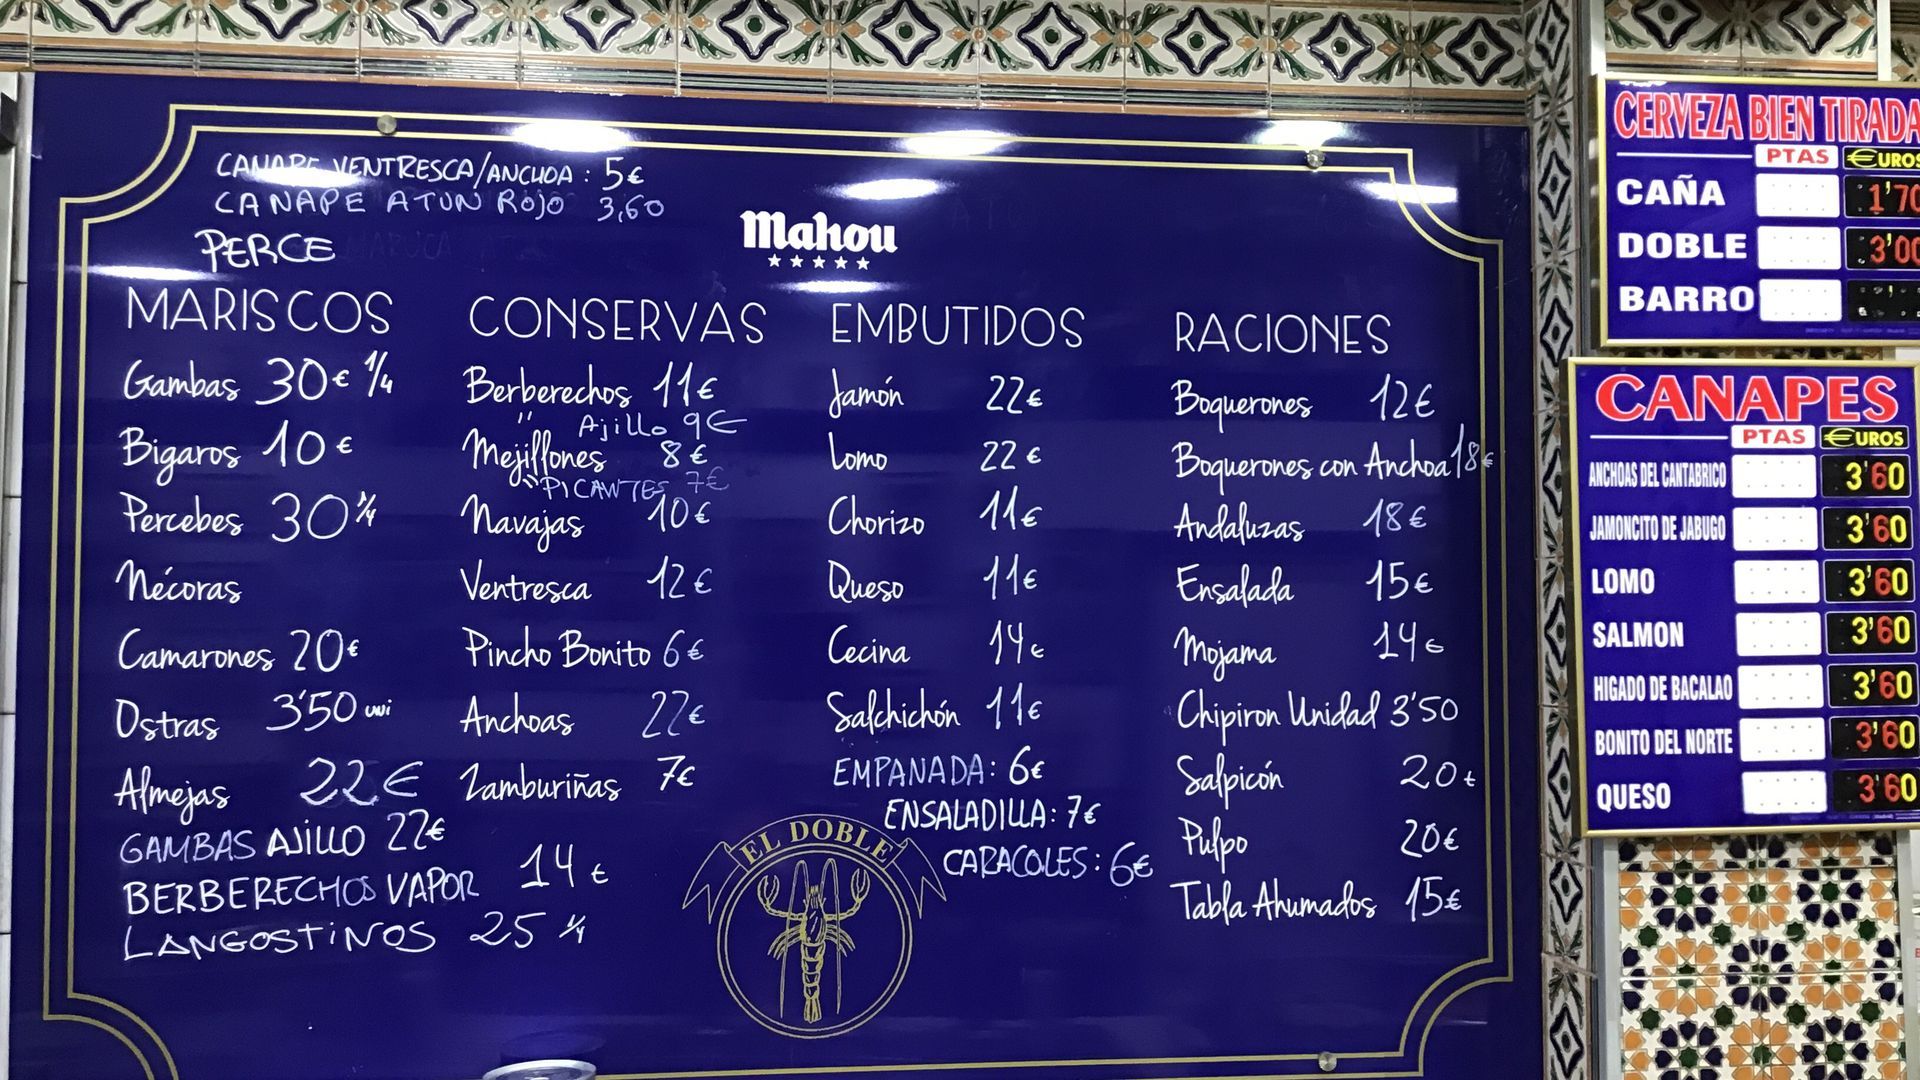 CANAPE VENTRESCA/ANCHOA : 5€
CANAPE ATUN ROJO 3,60
PERCE
mahou
MARISCOS
Gambas 30€ 1/4
Bigaros 10€
Percebes 30 1/4
Nécoras
Camarones 20€
Ostras 3'50 uni
Almejas 22€
GAMBAS AJILLO 22€
BERBERECHOS VAPOR 14€
LANGOSTINOS 25 1/4
CONSERVAS
Berberechos 11€
" Ajillo 9€
Mejillones 8€
" PICANTES 7€
Navajas 10€
Ventresca 12€
Pincho Bonito 6€
Anchoas 22€
Zamburiñas 7€
EMBUTIDOS
Jamón 22€
Lomo 22€
Chorizo 11€
Queso 11€
Cecina 14€
Salchichón 11€
EMPANADA: 6€
ENSALADILLA: 7€
CARACOLES: 6€
EL DOBLE
RACIONES
Boquerones 12€
Boquerones con Anchoa 18€
Andaluzas 18€
Ensalada 15€
Mojama 14€
Chipiron Unidad 3'50
Salpicón 20€
Pulpo 20€
Tabla Ahumados 15€
CERVEZA BIEN TIRADA
PTAS €UROS
CAÑA 1'70
DOBLE 3'00
BARRO
CANAPES
PTAS €UROS
ANCHOAS DEL CANTABRICO 3'60
JAMONCITO DE JABUGO 3'60
LOMO 3'60
SALMON 3'60
HIGADO DE BACALAO 3'60
BONITO DEL NORTE 3'60
QUESO 3'60